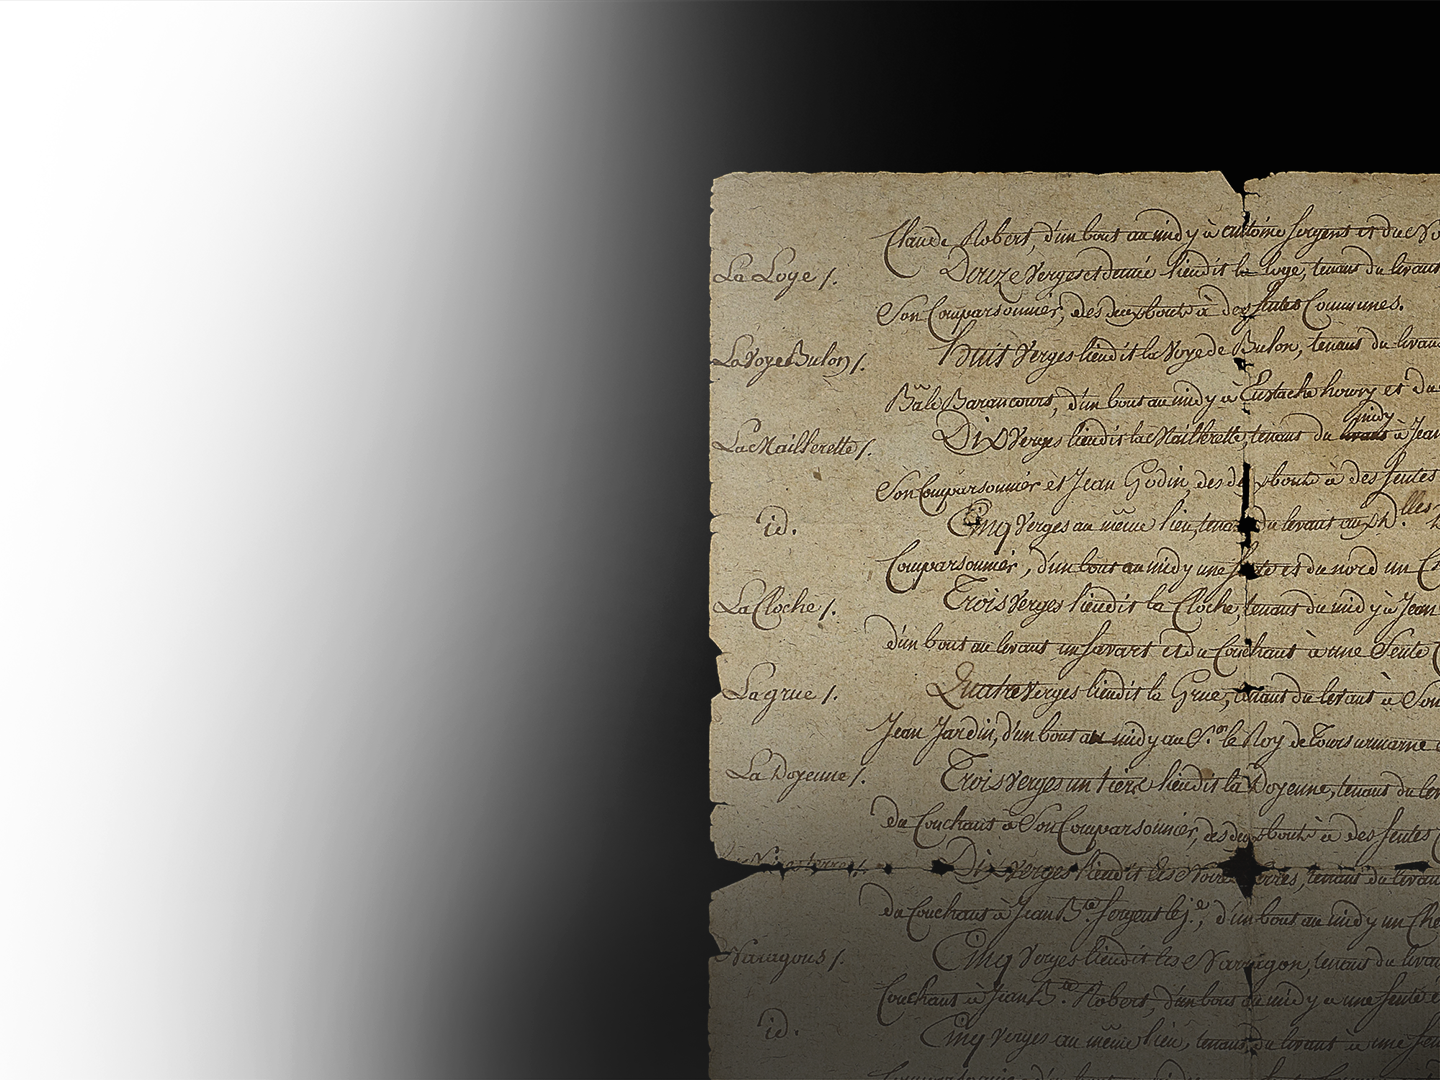 Claude Robert, d'un bout au midy à antoine sergent et du No
La Loye /. Douze Verges et demie lieudit la loye, tenant du levant
Son Comparsonnier, des deux bouts à des sentes Communes.
La Voye Bulon /. huit Verges lieudit la Voye de Bulon, tenant du levant
Barancourt, d'un bout au midy à Eustache houry et du
midy
La Nailherette /. Dix Verges lieudit la Nailherette, tenant du levant à Jean
Son Comparsonnier et Jean Godin, des d bouts à des sentes
id. Cinq Verges au même lieu, tenant du levant aux d.lles
Comparsonnier, d'un bout au midy une sente et du nord un
La Cloche /. Trois Verges lieudit la Cloche, tenant du midy à Jean
d'un bout au levant un savart et du Couchant à une Sente
La grue /. Quatre Verges lieudit la Grue, tenant du levant à Son
Jean Jardin, d'un bout au midy au S.r le Roy de Toursurmarne
La Doyenne /. Trois Verges un tiers lieudit la Doyenne, tenant du lev
du Couchant à Son Comparsonnier, des deux bouts à des sentes
Dix Verges lieudit les Noires terres, tenant du levant
du Couchant à Jean B.te Sergent le j.e, d'un bout au midy un Che
Naragons /. Cinq Verges lieudit les Narragon, tenant du levant
Couchant à Jean B.te Robert, d'un bout du midy à une sente et
id. Cinq Verges au même lieu, tenant du levant à une sen